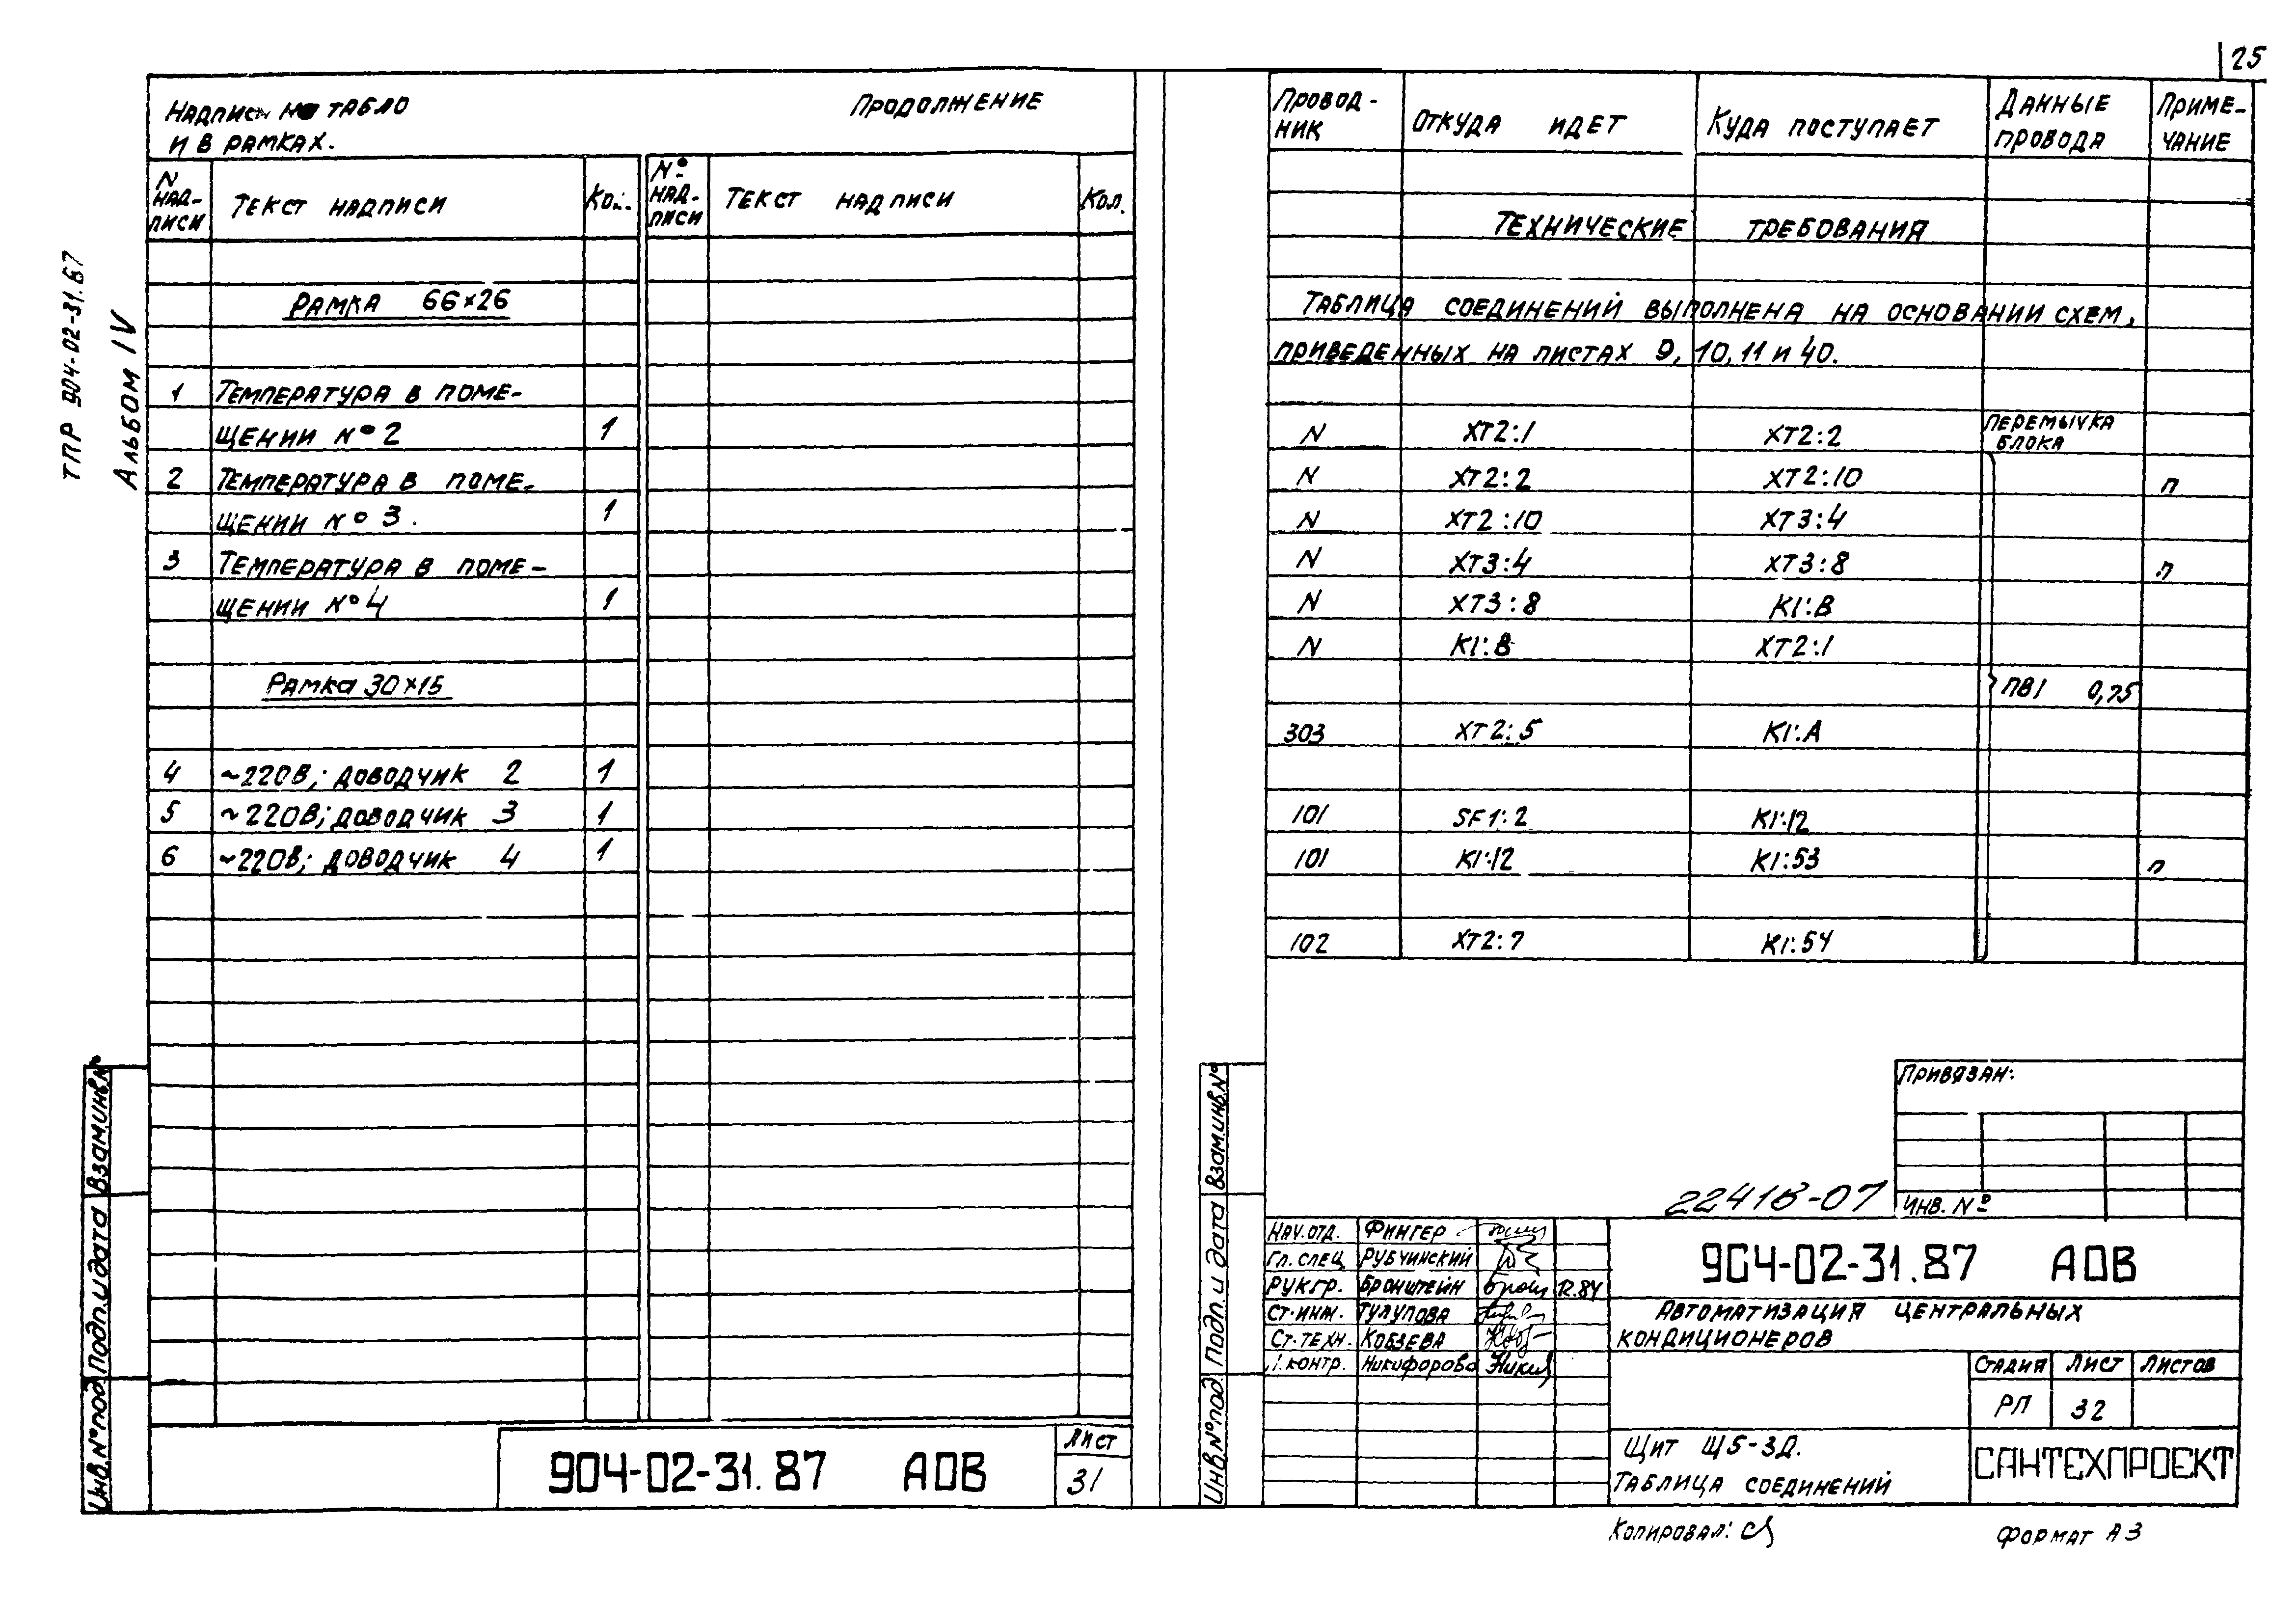 25
ТПР 904-02-31.87
Альбом IV
Надписи на табло Продолжение
и в рамках.
N надписи Текст надписи Кол. № надписи Текст надписи Кол.
Рамка 66×26
1 Температура в поме-
щении №2 1
2 Температура в поме-
щении №3. 1
3 Температура в поме-
щении №4 1
Рамка 30×15
4 ~220В; доводчик 2 1
5 ~220В; доводчик 3 1
6 ~220В; доводчик 4 1
904-02-31.87 АОВ
Лист
31
Инв.№подл Подп.и дата Взам.инв.№
Провод-
ник Откуда идет Куда поступает Данные
провода Приме-
чание
Технические требования
Таблица соединений выполнена на основании схем,
приведенных на листах 9, 10, 11 и 40.
N XT2:1 XT2:2 перемычка
блока
N XT2:2 XT2:10 п
N XT2:10 XT3:4
N XT3:4 XT3:8 п
N XT3:8 K1:B
N K1:B XT2:1
ПВ1 0,75
303 XT2:5 K1:A
101 SF1:2 K1:12
101 K1:12 K1:53 п
102 XT2:7 K1:54
Привязан:
Инв. №
22418-07
Инв.№подл Подп. и дата Взам.инв.№
Нач.отд. Фингер
Гл. спец Рубчинский
Рук.гр. Бронштейн
Ст.инж. Тулупова
Ст.техн. Кобзева
Н.контр. Никифорова
904-02-31.87 АОВ
Автоматизация центральных
кондиционеров
Стадия Лист Листов
РП 32
Щит Щ5-3Д.
Таблица соединений
САНТЕХПРОЕКТ
Копировал:
Формат А3